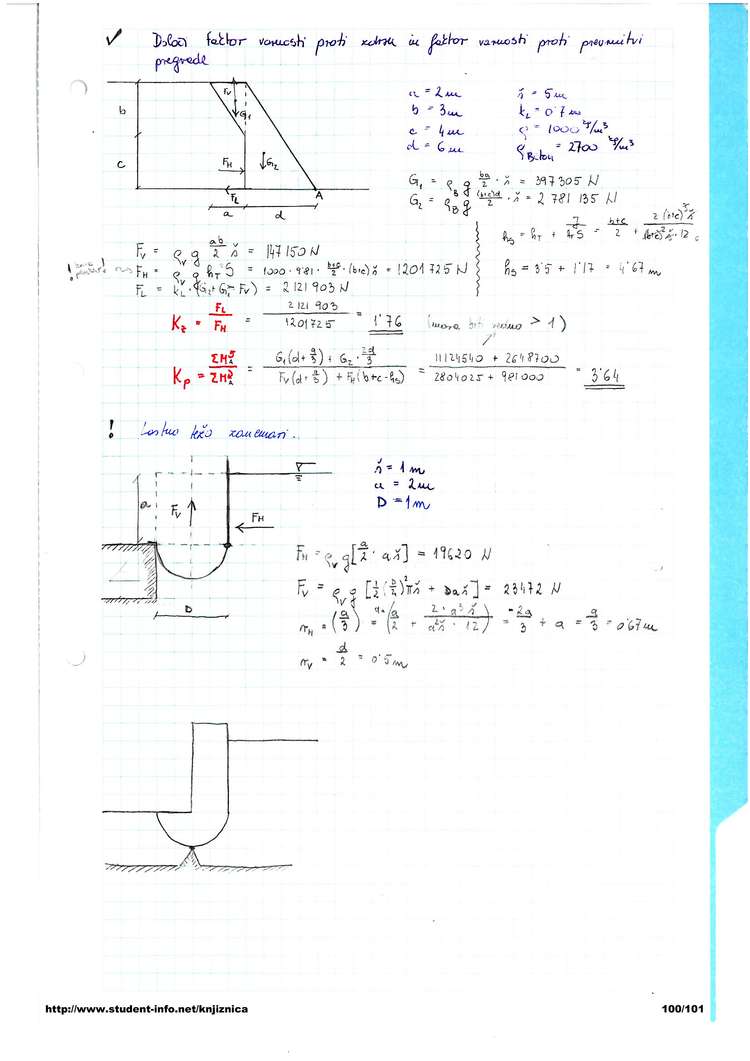 ✓ Določi faktor varnosti proti zdrsu in faktor varnosti proti prevrnitvi
pregrade
b
c
Fv
G1
FH
G2
FL
A
a
d
a = 2m
b = 3m
c = 4m
d = 6m
š = 5m
kL = 0'7
ρ = 1000 kg/m³
ρBeton = 2700 kg/m³
G1 = ρB g ba/2 · š = 397305 N
G2 = ρB g (b+c)d/2 · š = 2 781 135 N
Fv = ρv g ab/2 š = 147150 N
FH = ρv g hT S = 1000 · 9'81 · b+c/2 · (b+c) š = 1201725 N
FL = kL · (G2+G1-Fv) = 2 121 903 N
hS = hT + J/hT S = b+c/2 +
hS = 3'5 + 1'17 = 4'67 m
Kz = FL/FH = 2 121 903/1201725 = 1'76 (mora biti vedno > 1)
Kp = = G1(d+a/3) + G2 · 2d/3 / Fv(d+a/3) + FH(b+c-hS) = 11124540 + 2648700 / 2804025 + 981000 = 3'64
! Lastno težo zanemari.
a
Fv
FH
D
š = 1m
a = 2m
D = 1m
FH = ρv g [a/2 · aš] = 19620 N
Fv = ρv g [1/2 (D/2)² π š + Daš] = 23472 N
rH = (a/3) = = -2a/3 + a = a/3 = 0'67m
rv = d/2 = 0'5m
http://www.student-info.net/knjiznica
100/101